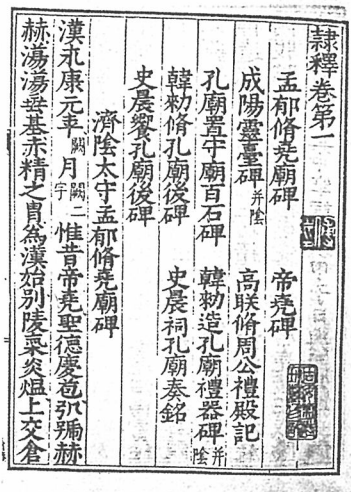 隷釋卷第一
孟郁脩堯廟碑 帝堯碑
成陽靈臺碑并陰 高联脩周公禮殿記
孔廟置守廟百石碑 韓勑造孔廟禮器碑并陰
韓勑脩孔廟後碑 史晨祠孔廟奏銘
史晨饗孔廟後碑
濟陰太守孟郁脩堯廟碑
漢永康元年闕月闕二字惟昔帝堯聖德慶苞弘煸赫
赫湯湯垂基赤精之胄為漢始别陵氣炎熅上交倉